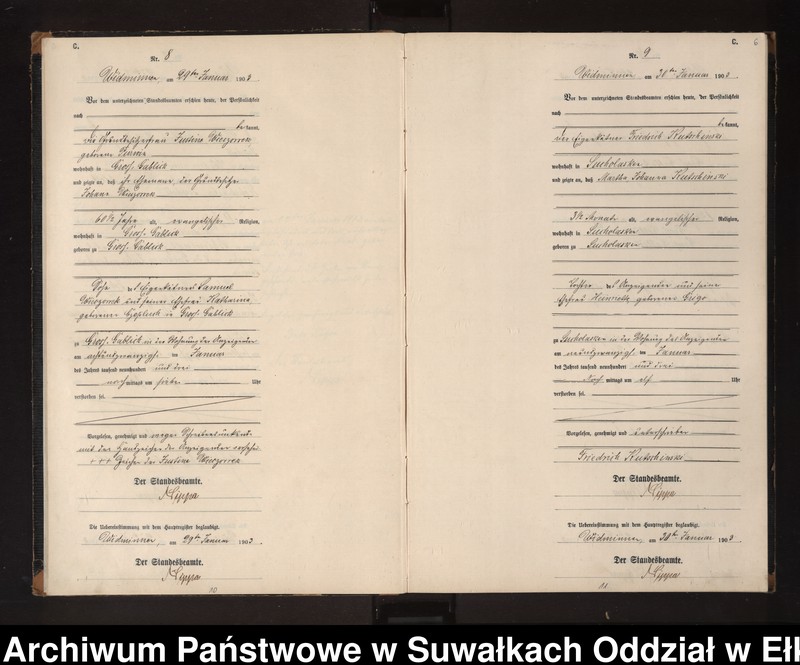 C.
Nr. 8
Widminnen am 29ten Januar 1903
Vor dem unterzeichneten Standesbeamten erschien heute, der Persönlichkeit
nach
be kannt,
die Grundbesitzerfrau Justine
geborene
wohnhaft in Gross Gablick
und zeigte an, daß ihr Ehemann, der Grundbesitzer
Johann
60 1/2 Jahre alt, evangelischer Religion,
wohnhaft in Gross Gablick
geboren zu Gross Gablick
Sohn des Eigenkätners Samuel
und seiner Ehefrau Katharine
geborenen in Gross Gablick
zu Gross Gablick in der Wohnung der Anzeigenden
am achtundzwanzigsten Januar
des Jahres tausend neunhundert und drei
nach mittags um sieben Uhr
verstorben sei.
Vorgelesen, genehmigt und wegen
mit dem Handzeichen der Anzeigenden versehen
+++ Zeichen der Justine
Der Standesbeamte.
Lippa
Die Uebereinstimmung mit dem Hauptregister beglaubigt.
Widminnen, am 29ten Januar 1903.
Der Standesbeamte.
Lippa
10
C. 6
Nr. 9
Widminnen am 30ten Januar 1903.
Vor dem unterzeichneten Standesbeamten erschien heute, der Persönlichkeit
nach
be kannt,
der Eigenkätner Friedrich Kutschinski
wohnhaft in Sucholasken
und zeigte an, daß Martha Johanna Kutschinski
3 1/2 Monate alt, evangelischer Religion,
wohnhaft in Sucholasken
geboren zu Sucholasken
Tochter des Anzeigenden und seiner
Ehefrau Henriette geborenen
zu Sucholasken in der Wohnung des Anzeigenden
am neunundzwanzigsten Januar
des Jahres tausend neunhundert und drei
mittags um elf Uhr
verstorben sei.
Vorgelesen, genehmigt und unterschrieben
Friedrich Kutschinski
Der Standesbeamte.
Lippa
Die Uebereinstimmung mit dem Hauptregister beglaubigt.
Widminnen, am 30ten Januar 1903
Der Standesbeamte.
Lippa
11
Archiwum Państwowe w Suwałkach Oddział w Ełk